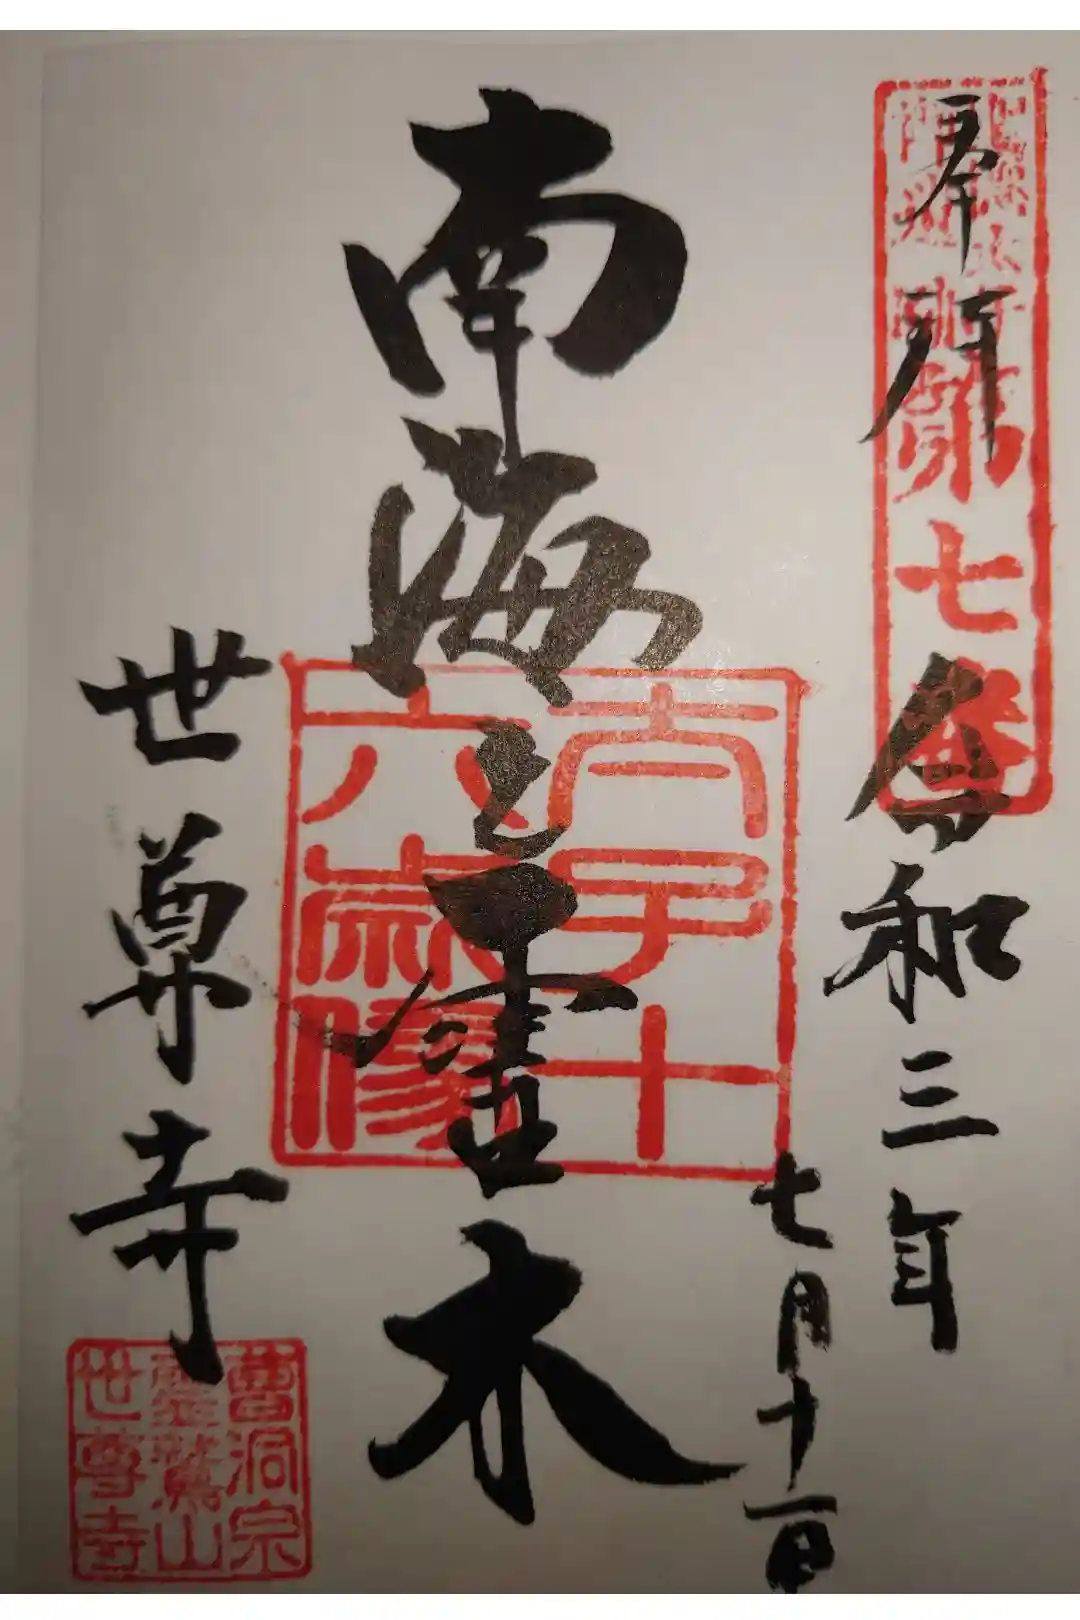 奉拝
令和三年
七月十一日
南海之霊木
世尊寺
第七番
太子十
六歳像
曹洞宗
霊鷲山
世尊寺